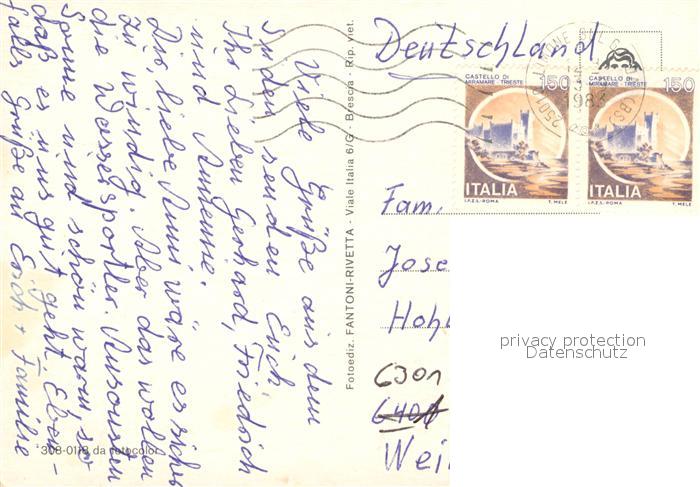 Viele Grüße aus dem
Süden senden Euch
Ihr Lieben Gerhard, Friedisch
und Annemie.
Die liebe Anni wäre es sicher
zu windig. Aber das wollen
die Wassersportler. Ansonsten
Sonne und schön warm, so
daß es uns gut geht. Eben-
falls Grüße an Erich + Familie
308-0118 da fotocolor
Fotoediz. FANTONI-RIVETTA - Viale Italia 6/G - Brescia - Rip. viet.
Deutschland
CASTELLO DI
MIRAMARE - TRIESTE
150
ITALIA
I.P.Z.S.-ROMA
T. MELE
CASTELLO DI
MIRAMARE - TRIESTE
150
ITALIA
I.P.Z.S.-ROMA
T. MELE
Fam.
Jose
Hohl
6301
Wei
privacy protection
Datenschutz